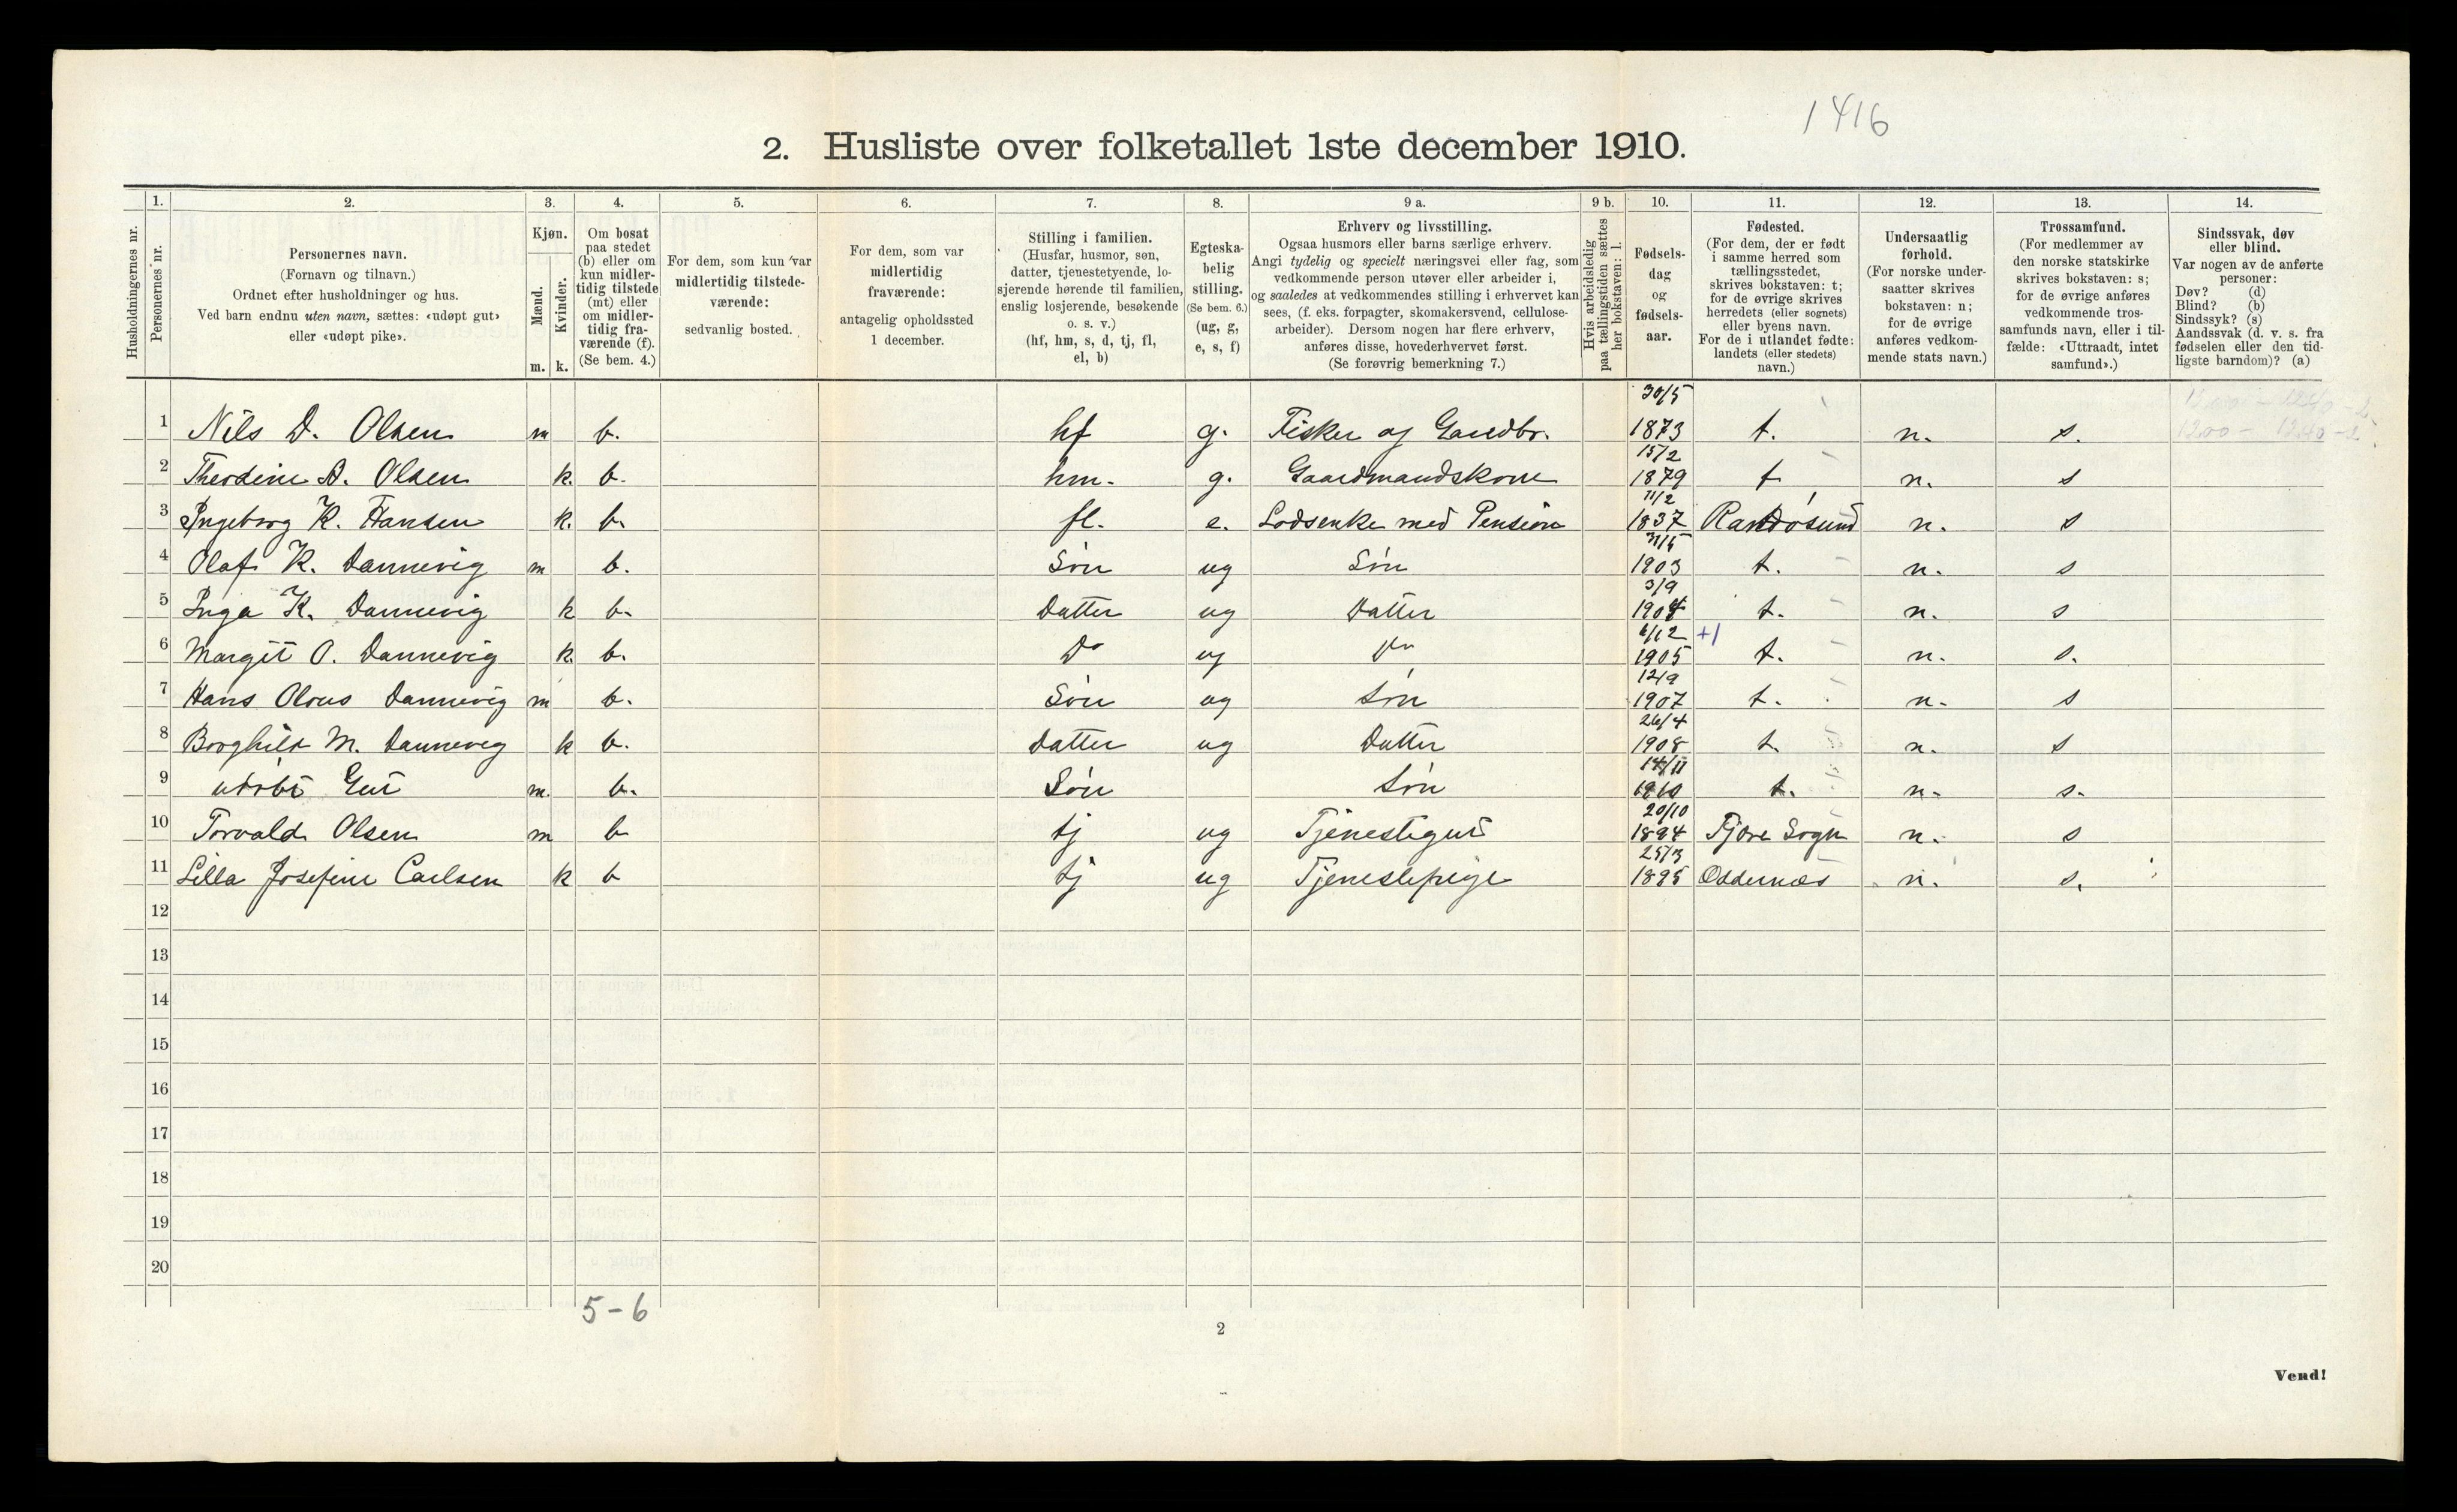 1416
2. Husliste over folketallet 1ste december 1910.
Husholdningernes nr.
1.
Personernes nr.
2.
Personernes navn.
(Fornavn og tilnavn.)
Ordnet efter husholdninger og hus.
Ved barn endnu uten navn, sættes: «udøpt gut»
eller «udøpt pike».
3.
Kjøn.
Mænd.
m.
Kvinder.
k.
4.
Om bosat
paa stedet
(b) eller om
kun midler-
tidig tilstede
(mt) eller
om midler-
tidig fra-
værende (f).
(Se bem. 4.)
5.
For dem, som kun var
midlertidig tilstede-
værende:
sedvanlig bosted.
6.
For dem, som var
midlertidig
fraværende:
antagelig opholdssted
1 december.
7.
Stilling i familien.
(Husfar, husmor, søn,
datter, tjenestetyende, lo-
sjerende hørende til familien,
enslig losjerende, besøkende
o. s. v.)
(hf, hm, s, d, tj, fl,
el, b)
8.
Egteska-
belig
stilling.
(Se bem. 6.)
(ug, g,
e, s, f)
9 a.
Erhverv og livsstilling.
Ogsaa husmors eller barns særlige erhverv.
Angi tydelig og specielt næringsvei eller fag, som
vedkommende person utøver eller arbeider i,
og saaledes at vedkommendes stilling i erhvervet kan
sees, (f. eks. forpagter, skomakersvend, cellulose-
arbeider). Dersom nogen har flere erhverv,
anføres disse, hovederhvervet først.
(Se forøvrig bemerkning 7.)
9 b.
Hvis arbeidsledig
paa tællingstiden sættes
her bokstaven: l.
10.
Fødsels-
dag
og
fødsels-
aar.
11.
Fødested.
(For dem, der er født
i samme herred som
tællingsstedet,
skrives bokstaven: t;
for de øvrige skrives
herredets (eller sognets)
eller byens navn.
For de i utlandet fødte:
landets (eller stedets)
navn.)
12.
Undersaatlig
forhold.
(For norske under-
saatter skrives
bokstaven: n;
for de øvrige
anføres vedkom-
mende stats navn.)
13.
Trossamfund.
(For medlemmer av
den norske statskirke
skrives bokstaven: s;
for de øvrige anføres
vedkommende tros-
samfunds navn, eller i til-
fælde: «Uttraadt, intet
samfund».)
14.
Sindssvak, døv
eller blind.
Var nogen av de anførte
personer:
Døv? (d)
Blind? (b)
Sindssyk? (s)
Aandssvak (d. v. s. fra
fødselen eller den tid-
ligste barndom)? (a)
1 Nils D. Olsen m b. hf g. Fisker og Gaardbr. 30/5 1873 t. n. s.
2 Theodine A. Olsen k. b. hm. g. Gaardmandskone 15/2 1879 t n. s
3 Ingeborg K. Hansen k. b. fl. e. Lodsenke med Pension 11/2 1837 Randøsund n. s
4 Olaf K. Dannevig m b. Søn ug Søn 31/5 1903 t. n. s
5 Inga K. Dannevig k b. Datter ug Datter 3/9 1904 t. n. s
6 Margit O. Dannevig k. b. Do ug Do 6/12 1905 +1 t. n. s.
7 Hans Olous Dannevig m b. Søn ug Søn 12/9 1907 t. n. s
8 Borghild M. Dannevig k b. Datter ug Datter 26/4 1908 t. n. s
9 udøbt Gut m. b. Søn Søn 14/11 1910 t. n. s.
10 Torvald Olsen m b tj ug Tjenestegut 20/10 1894 Fjære Sogn n. s
11 Lilla Josefine Carlsen k b tj ug Tjenestepige 25/3 1895 Oddernæs n. s.
12
13
14
15
16
17
18
19
20
5-6
2
Vend!